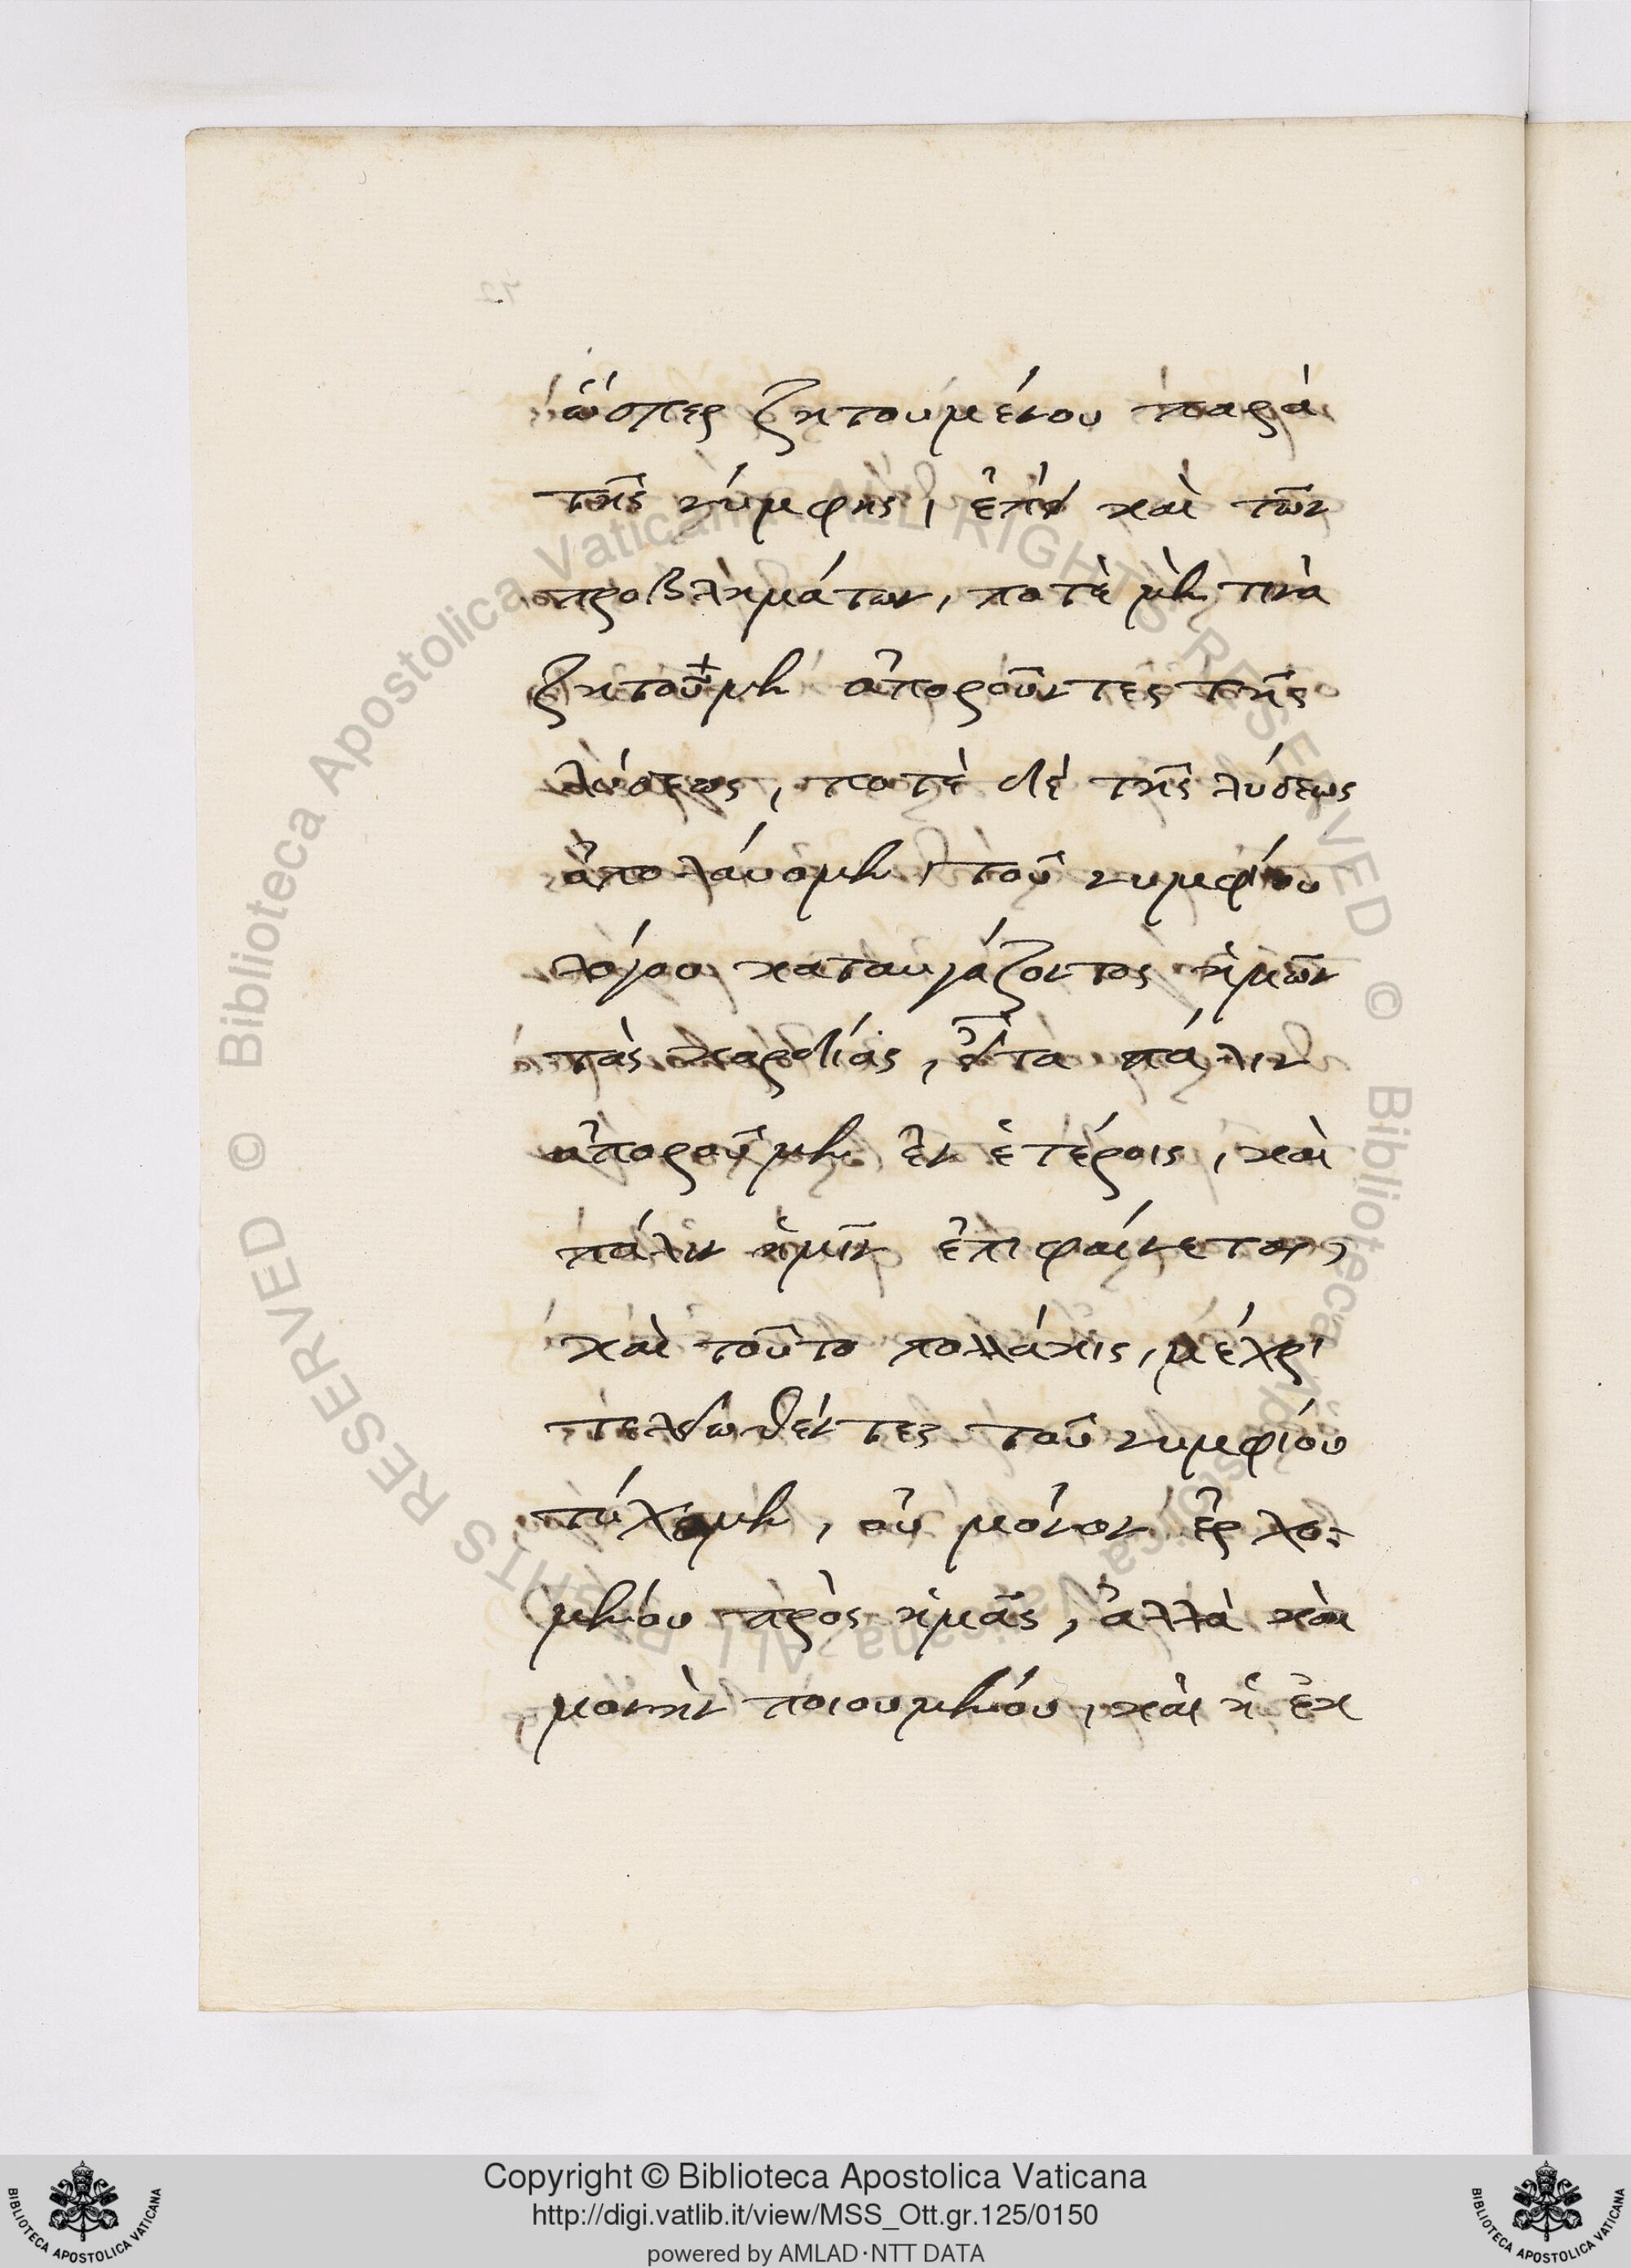 ὥσπερ ζητουμένου παρὰ
τῆς νύμφης, ἐπεὶ καὶ τῶν
προβλημάτων, ποτὲ μὲν τινὰ
ζητοῦμεν ἀποροῦντες τῆς
λύσεως, ποτὲ δὲ τῆς λύσεως
ἀπολάυομεν, τοῦ νυμφίου
λόγου καταυγάζοντος ἡμῶν
τὰς καρδίας, εἶτα πάλιν
ἀποροῦμεν ἐν ἑτέροις, καὶ
πάλιν ἡμῖν ἐπιφαίνεται,
καὶ τοῦτο πολλάκις, μέχρι
τελειωθέντες τοῦ νυμφίου
τύχωμεν, οὐ μόνον ἐρχο-
μένου πρὸς ἡμᾶς, ἀλλὰ καὶ
μονὴν ποιουμένου, καὶ ἡ ἐκ
© Biblioteca Apostolica Vaticana ALL RIGHTS RESERVED
© Biblioteca Apostolica Vaticana ALL RIGHTS RESERVED
Copyright © Biblioteca Apostolica Vaticana
http://digi.vatlib.it/view/MSS_Ott.gr.125/0150
powered by AMLAD·NTT DATA
BIBLIOTECA APOSTOLICA VATICANA
BIBLIOTECA APOSTOLICA VATICANA